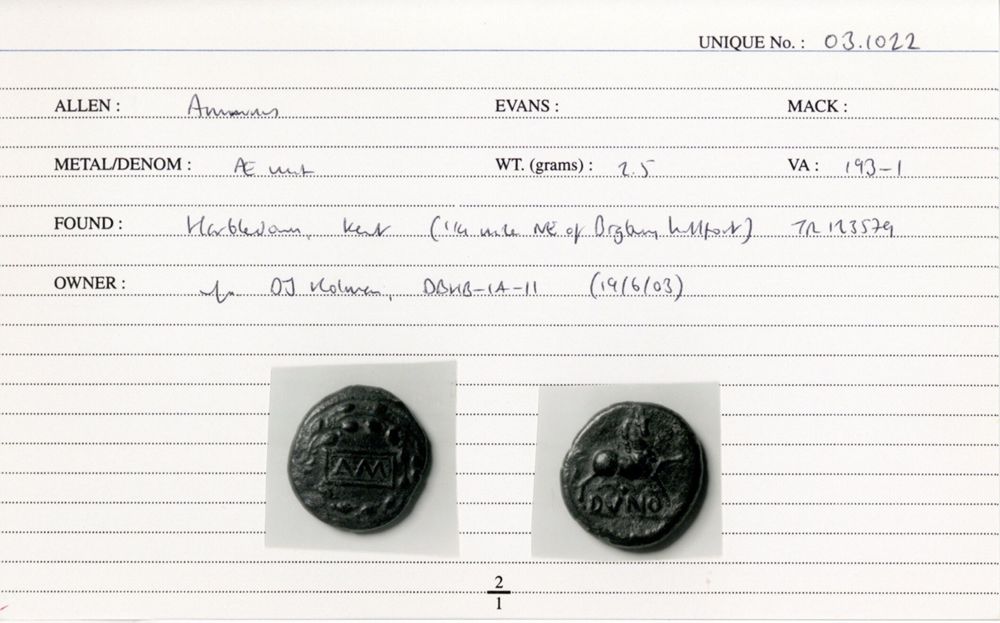 UNIQUE No. : 03.1022
ALLEN : EVANS : MACK :
METAL/DENOM : Æ unit WT. (grams) : 2.5 VA : 193-1
FOUND : Harbledown, Kent (1/4 mile NE of Bigbury hillfort) TR 123579
OWNER : DJ Holman, DBHB-1A-11 (19/6/03)
AM
DVNO
2
1